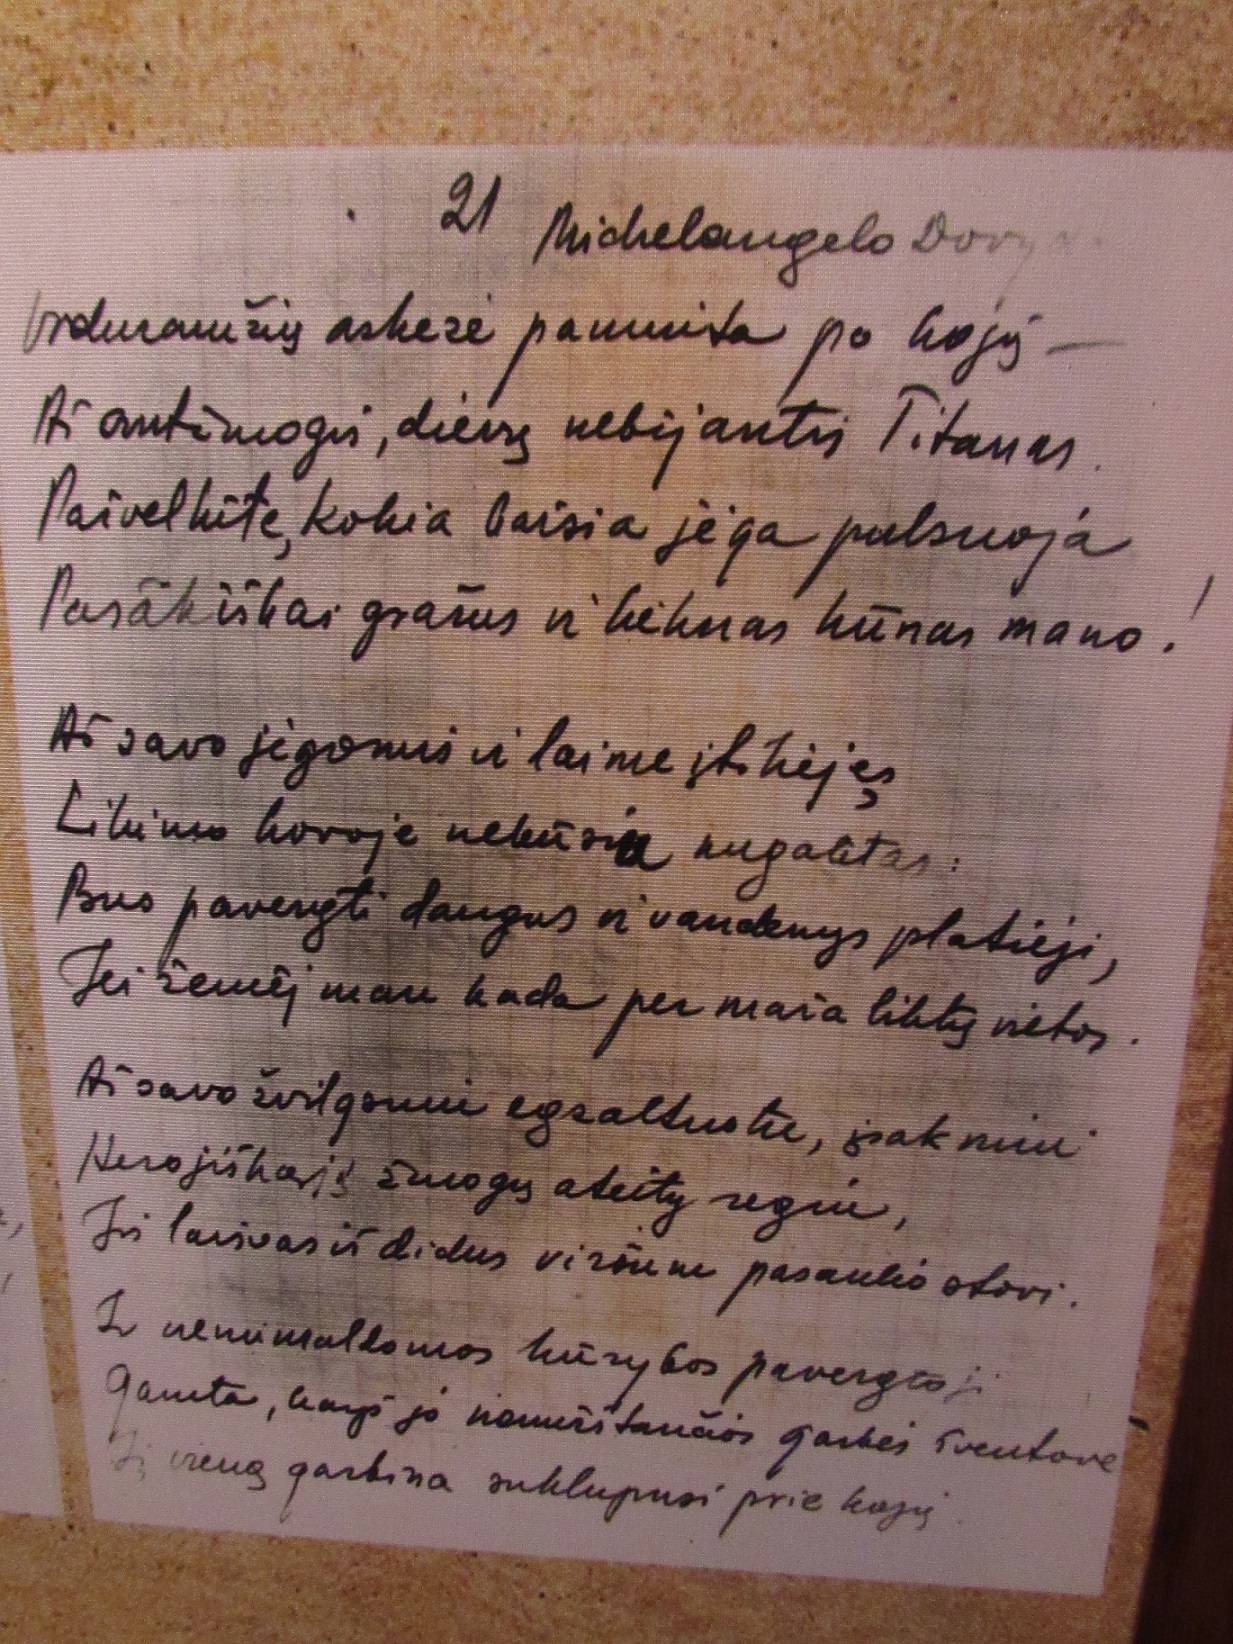 21 Michelangelo
Viduramžių askezė paminta po kojų —
Aš antžmogis, dievų nebijantis Titanas.
Pažvelkite, kokia baisia jėga pulsuoja
Pasakiškai gražus ir lieknas kūnas mano!
Aš savo jėgomis ir laime įtikėjęs
Likimo kovoje nebūsiu nugalėtas:
Bus pavergti dangus ir vandenys platieji,
Jei žemėj man kada per maža liktų vietos.
Aš savo žvilgsniu egzaltuotu, įsakmiu
Herojiškąjį žmogų ateity regiu,
Jis laisvas iš didus viršum pasaulio stovi.
Ir nenumaldomos kūrybos
Gamta, kaip jo nemirštančios garbės šventovė
Jį vieną garbina suklupusi prie kojų.